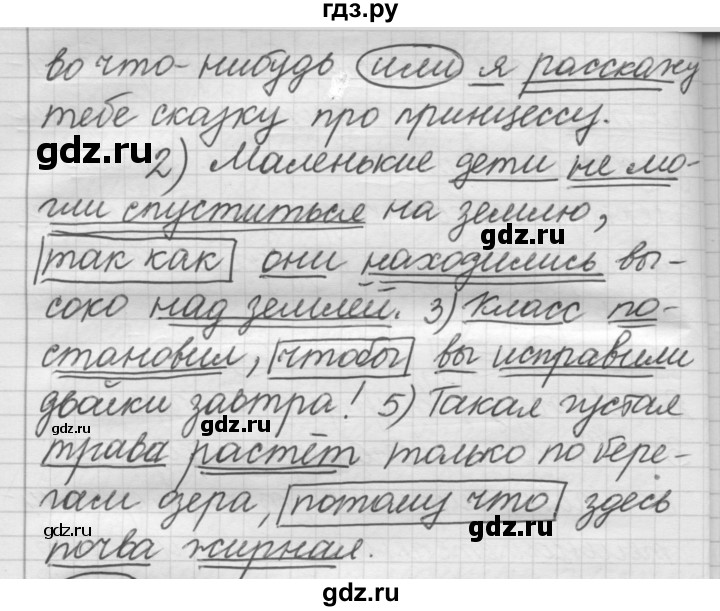 гдз.ру
во что-нибудь или я расскажу
тебе сказку про принцессу.
gdz.ru
2) Маленькие дети не мо-
gdz.ru
гли спуститься на землю,
gdz.ru
так как они находились вы-
соко над землей. 3) Класс по-
становил, чтобы вы исправили
двойки завтра! 5) Такая густая
gdz.ru
gdz.ru
трава растёт только по бере-
гам озера, потому что здесь
gdz.ru
gdz.ru
почва жирная.
gdz.ru